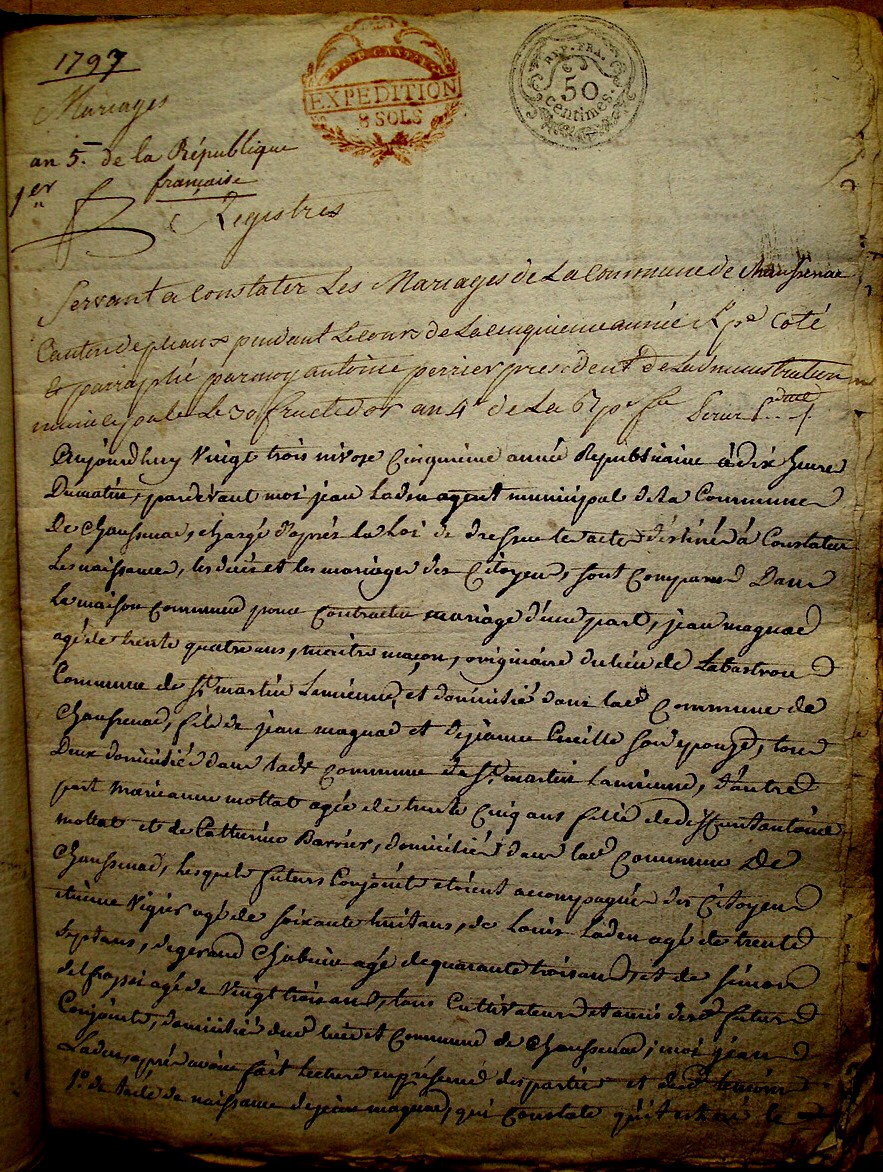 1797
Mariages
an 5.e de la République
française
1er
Registres
DEP. DU CANTAL
EXPEDITION
8 SOLS
REP. FRA.
50
centimes.
Servant a constater Les Mariages de La Commune de Chaussenac
Canton de pleaux pendant Le Cours de La Cinquieme année Rpe. Coté
& parraphé par moy antoine perrier president de Ladministration
municipale Le 30 fructidor an 4e de La
Aujourdhuy Vingt trois nivose Cinquième année Republicaine à dix heure
Du matin, pardevant moi jean Laden agent municipal de la Commune
De Chaussenac, chargé d'après la Loi de dresser le actes déstinés à Constater
Les naissances, les décès et les mariages des Citoyens, sont Comparus Dans
La maison Commune pour Contracter mariage d'une part, jean magnac
agé de trente quatre ans, maitre maçon, originaire du lieu de Labastrou
Commune de St martin et domicilié dans lade Commune de
Chaussenac, fils de jean magnac et de jeanne son epouze, tous
Deux domiciliés dans ladte Commune de St martin, d'autre
part marieanne mottat agée de trente Cinq ans fille de deffunt antoine
mottat et de Catherine Barrier, domiciliés dans lade Commune De
Chaussenac, lesquels futurs Conjoints etoient accompagnés des Citoyens
etienne Vigier agé de soixante huit ans, de Louis Laden agé de trente
Sept ans, de gerand Chabrier agé de quarante trois ans, et de simon
delfraysi agé de Vingt trois ans, tous Cultivateurs et amis desd. futurs
Conjoints, domiciliés dud. lieu et Commune de Chaussenac; moi jean
Laden, après avoir fait lecture en présence des parties et desd. temoins
1o. de l'acte de naissance de jean magnac, qui Constate qu'il est né le